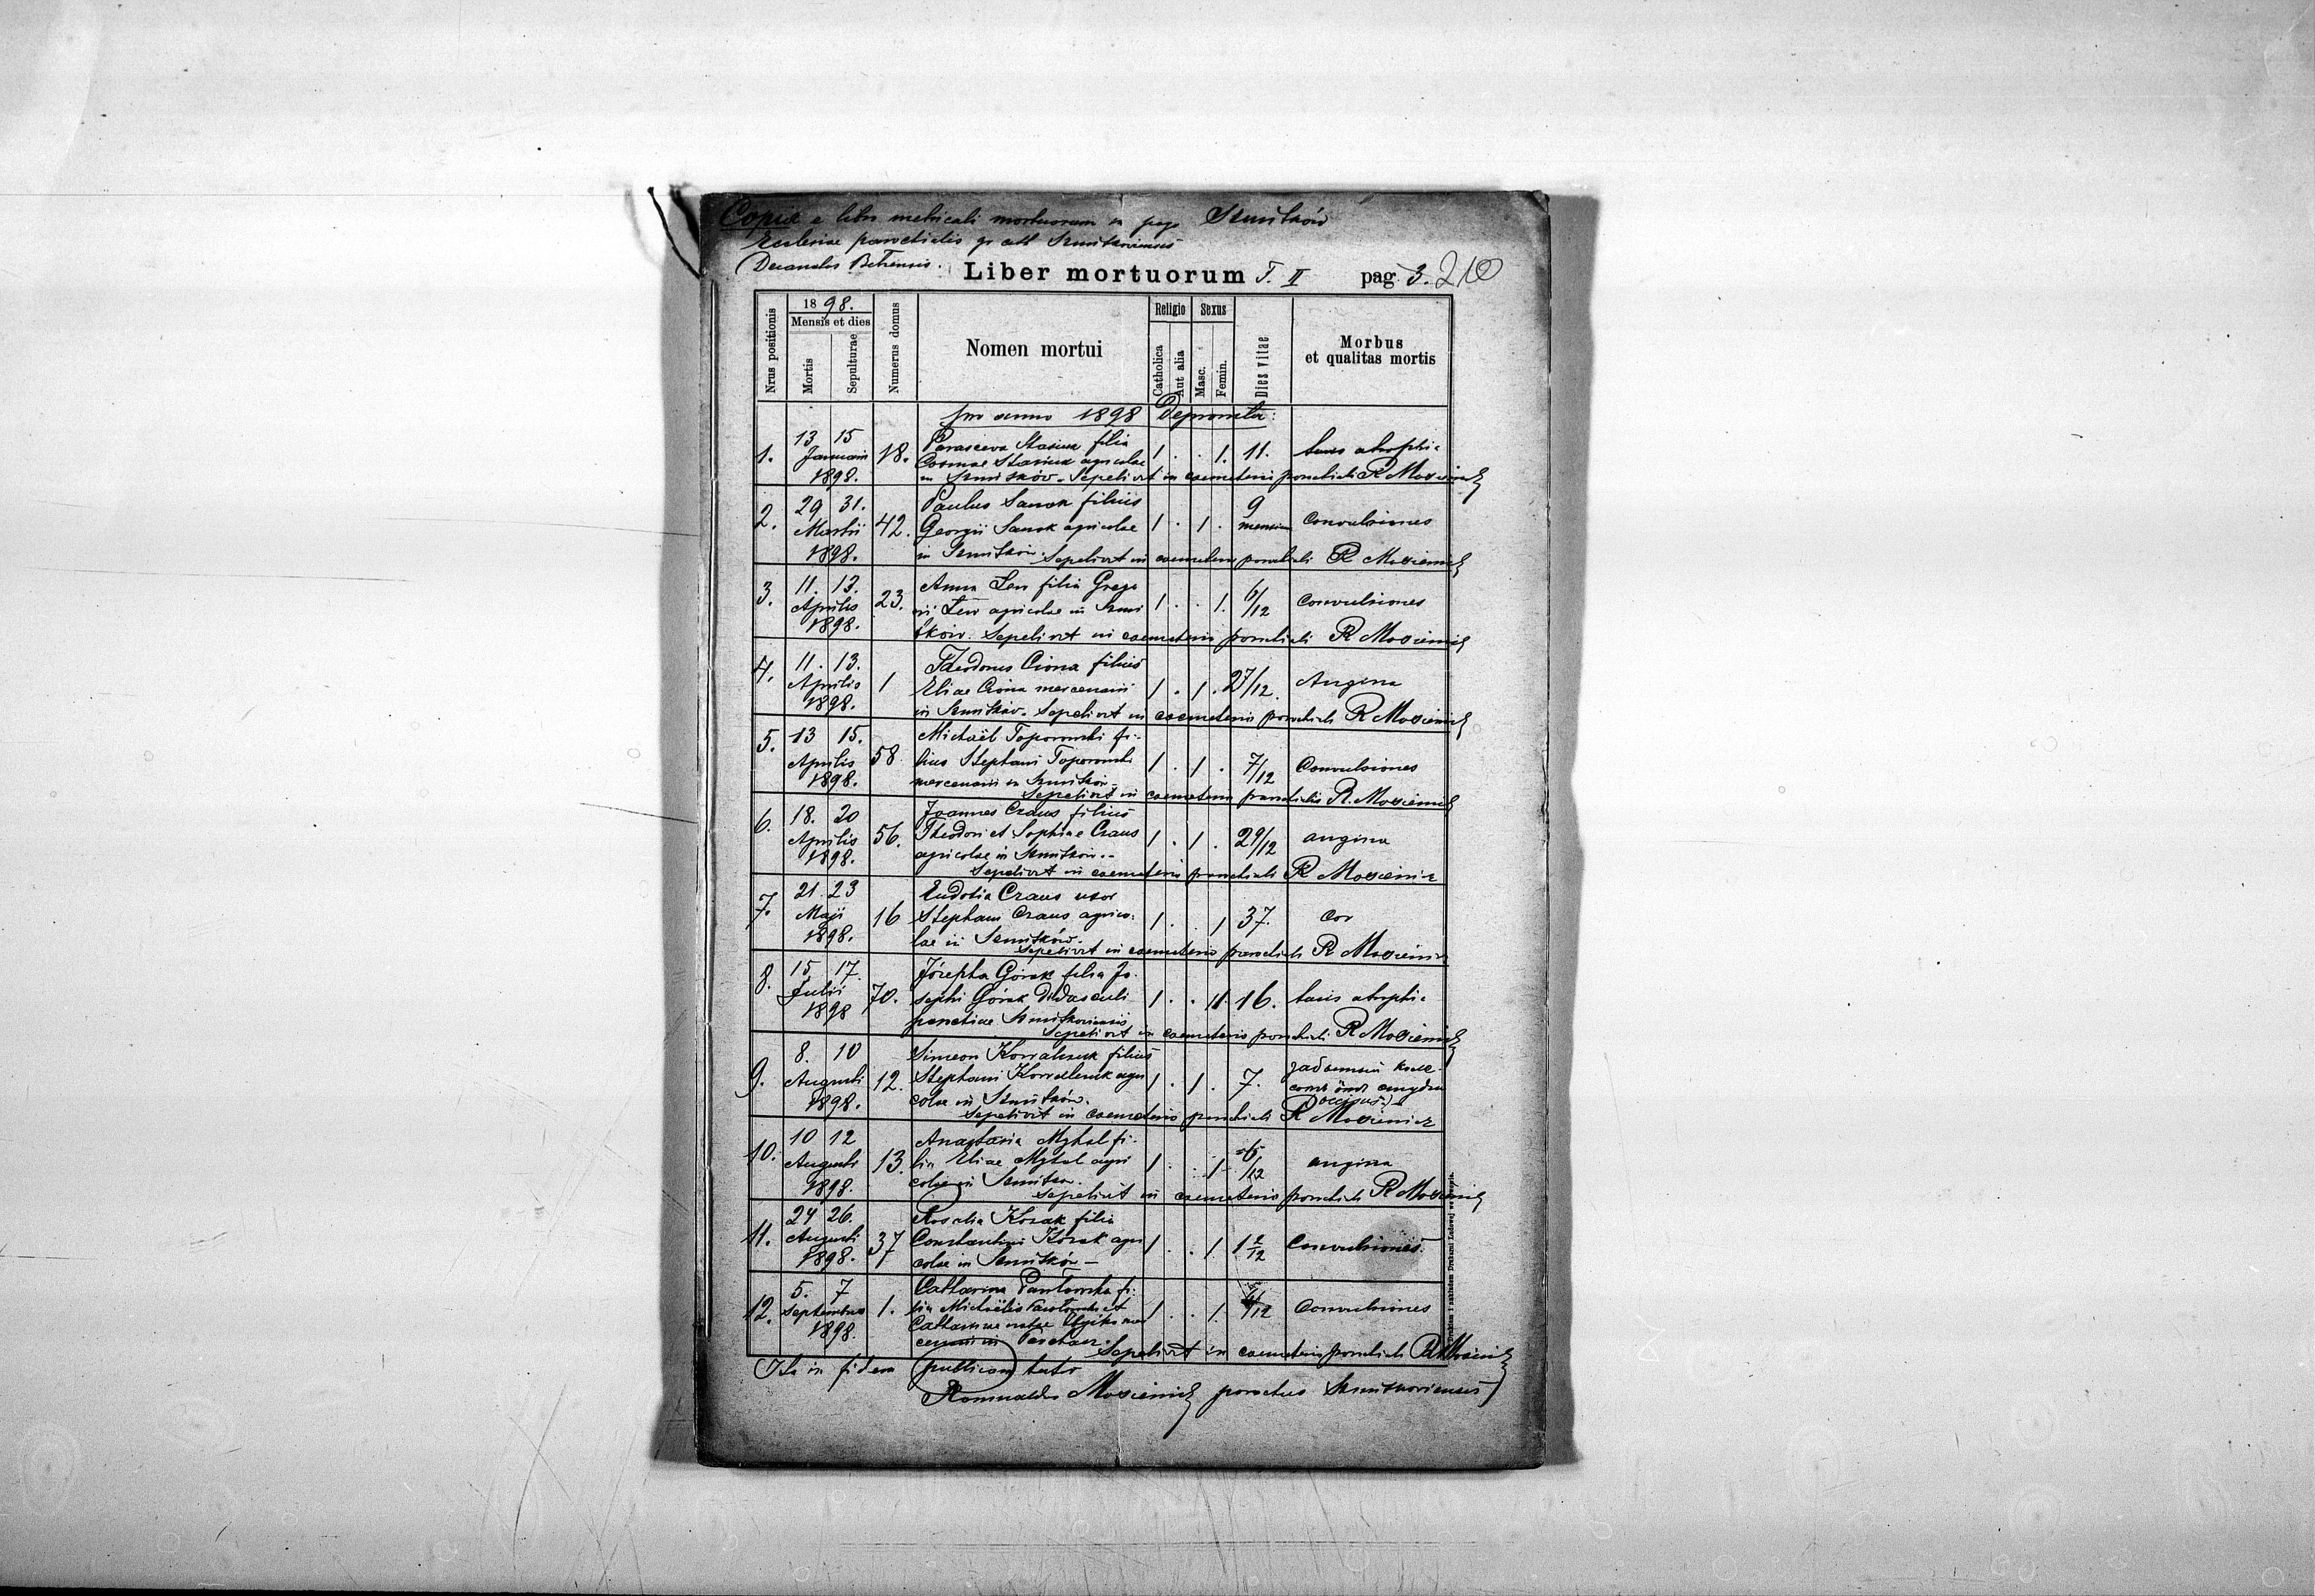 Copia e libro metricali mortuorum in pago Szmitków
Ecclesiae parochialis gr cath Szmitkoviensis
Decanatus Belzensis.
Liber mortuorum T. II pag. 3. 210
Nrus positionis
1898.
Mensis et dies
Mortis
Sepulturae
Numerus domus
Nomen mortui
Religio
Catholica
Aut alia
Sexus
Masc.
Femin.
Dies vitae
Morbus
et qualitas mortis
pro anno 1898 Deprompta:
1. 13 15 Januarii 1898. 18.
Parasceva Stasiuk filia
Cosmae Stasiuk agricolae
in Szmitków. Sepelivit in coemeterio parochiali R Mosiewicz
1 . . 1. 11.
2. 29 31. Martii 1898. 42.
Paulus Sawok filius
Georgii Sawok agricolae
in Szmitków. Sepelivit in coemeterio parochiali R Mosiewicz
1 . 1 . 9 mensium Convulsiones
3. 11. 13. Aprilis 1898. 23.
Anna Lew filia Grego
rii Lew agricolae in Szmi
tków. Sepelivit in coemeterio parochiali R Mosiewicz
1 . . 1. 6/12 Convulsiones
4. 11. 13. Aprilis 1898. 1
Theodorus Ciona filius
Eliae Ciona mercenarii
in Szmitków. Sepelivit in coemeterio parochiali R Mosiewicz
1 . 1 . 2 7/12. Angina
5. 13 15. Aprilis 1898. 58.
Michaël Toporowski fi-
lius Stephani Toporowski
mercenarii in Szmitków
Sepelivit in coemeterio parochiali R. Mosiewicz
1 . 1 . 7/12 Convulsiones
6. 18. 20 Aprilis 1898. 56.
Joannes Craus filius
Theodori et Sophiae Craus
agricolae in Szmitków.-
Sepelivit in coemeterio parochiali R Mosiewicz
1 . 1 . 2 9/12 angina
7. 21 23 Maji 1898. 16
Eudokia Craus uxor
Stephani Craus agrico-
lae in Szmitków.
Sepelivit in coemeterio parochiali R Mosiewicz
1 . . 1 37. Cor
8. 15. 17. Julii 1898 70.
Józepha Górak filia Jo-
sephi Górak Didasculi
parochiae Szmitkoviensis
Sepelivit in coemeterio parochiali R Mosiewicz
1 . . 1. 16.
9. 8. 10 Augusti 1898. 12.
Simeon Kowalczuk filius
Stephani Kowalczuk agri
colae in Szmitków.
Sepelivit in coemeterio parochiali R Mosiewicz
1 . 1 . 7.
occisus
10. 10 12 Augusti 1898. 13.
Anastasia Mykal fi-
lia Eliae Mykal agri
colae in Szmitków.
Sepelivit in coemeterio parochiali R Mosiewicz
1 . . 1 /12 angina
11. 24 26. Augusti 1898. 37
Rosalia Kozak filia
Constantini Kozak agri
colae in Szmitków —
1 . . 1. 1 2/12 Convulsiones.
12. 5. 7 Septembris 1898. 1.
Catharina Pawłowska fi-
lia Michaëlis Pawłowski et
Catharinae natae
Sepelivit in coemeterio parochiali R Mosiewicz
1 . . 1. /12 Convulsiones
Ita in fidem publicam testor
Romualdus Mosiewicz parochus Szmitkoviensis